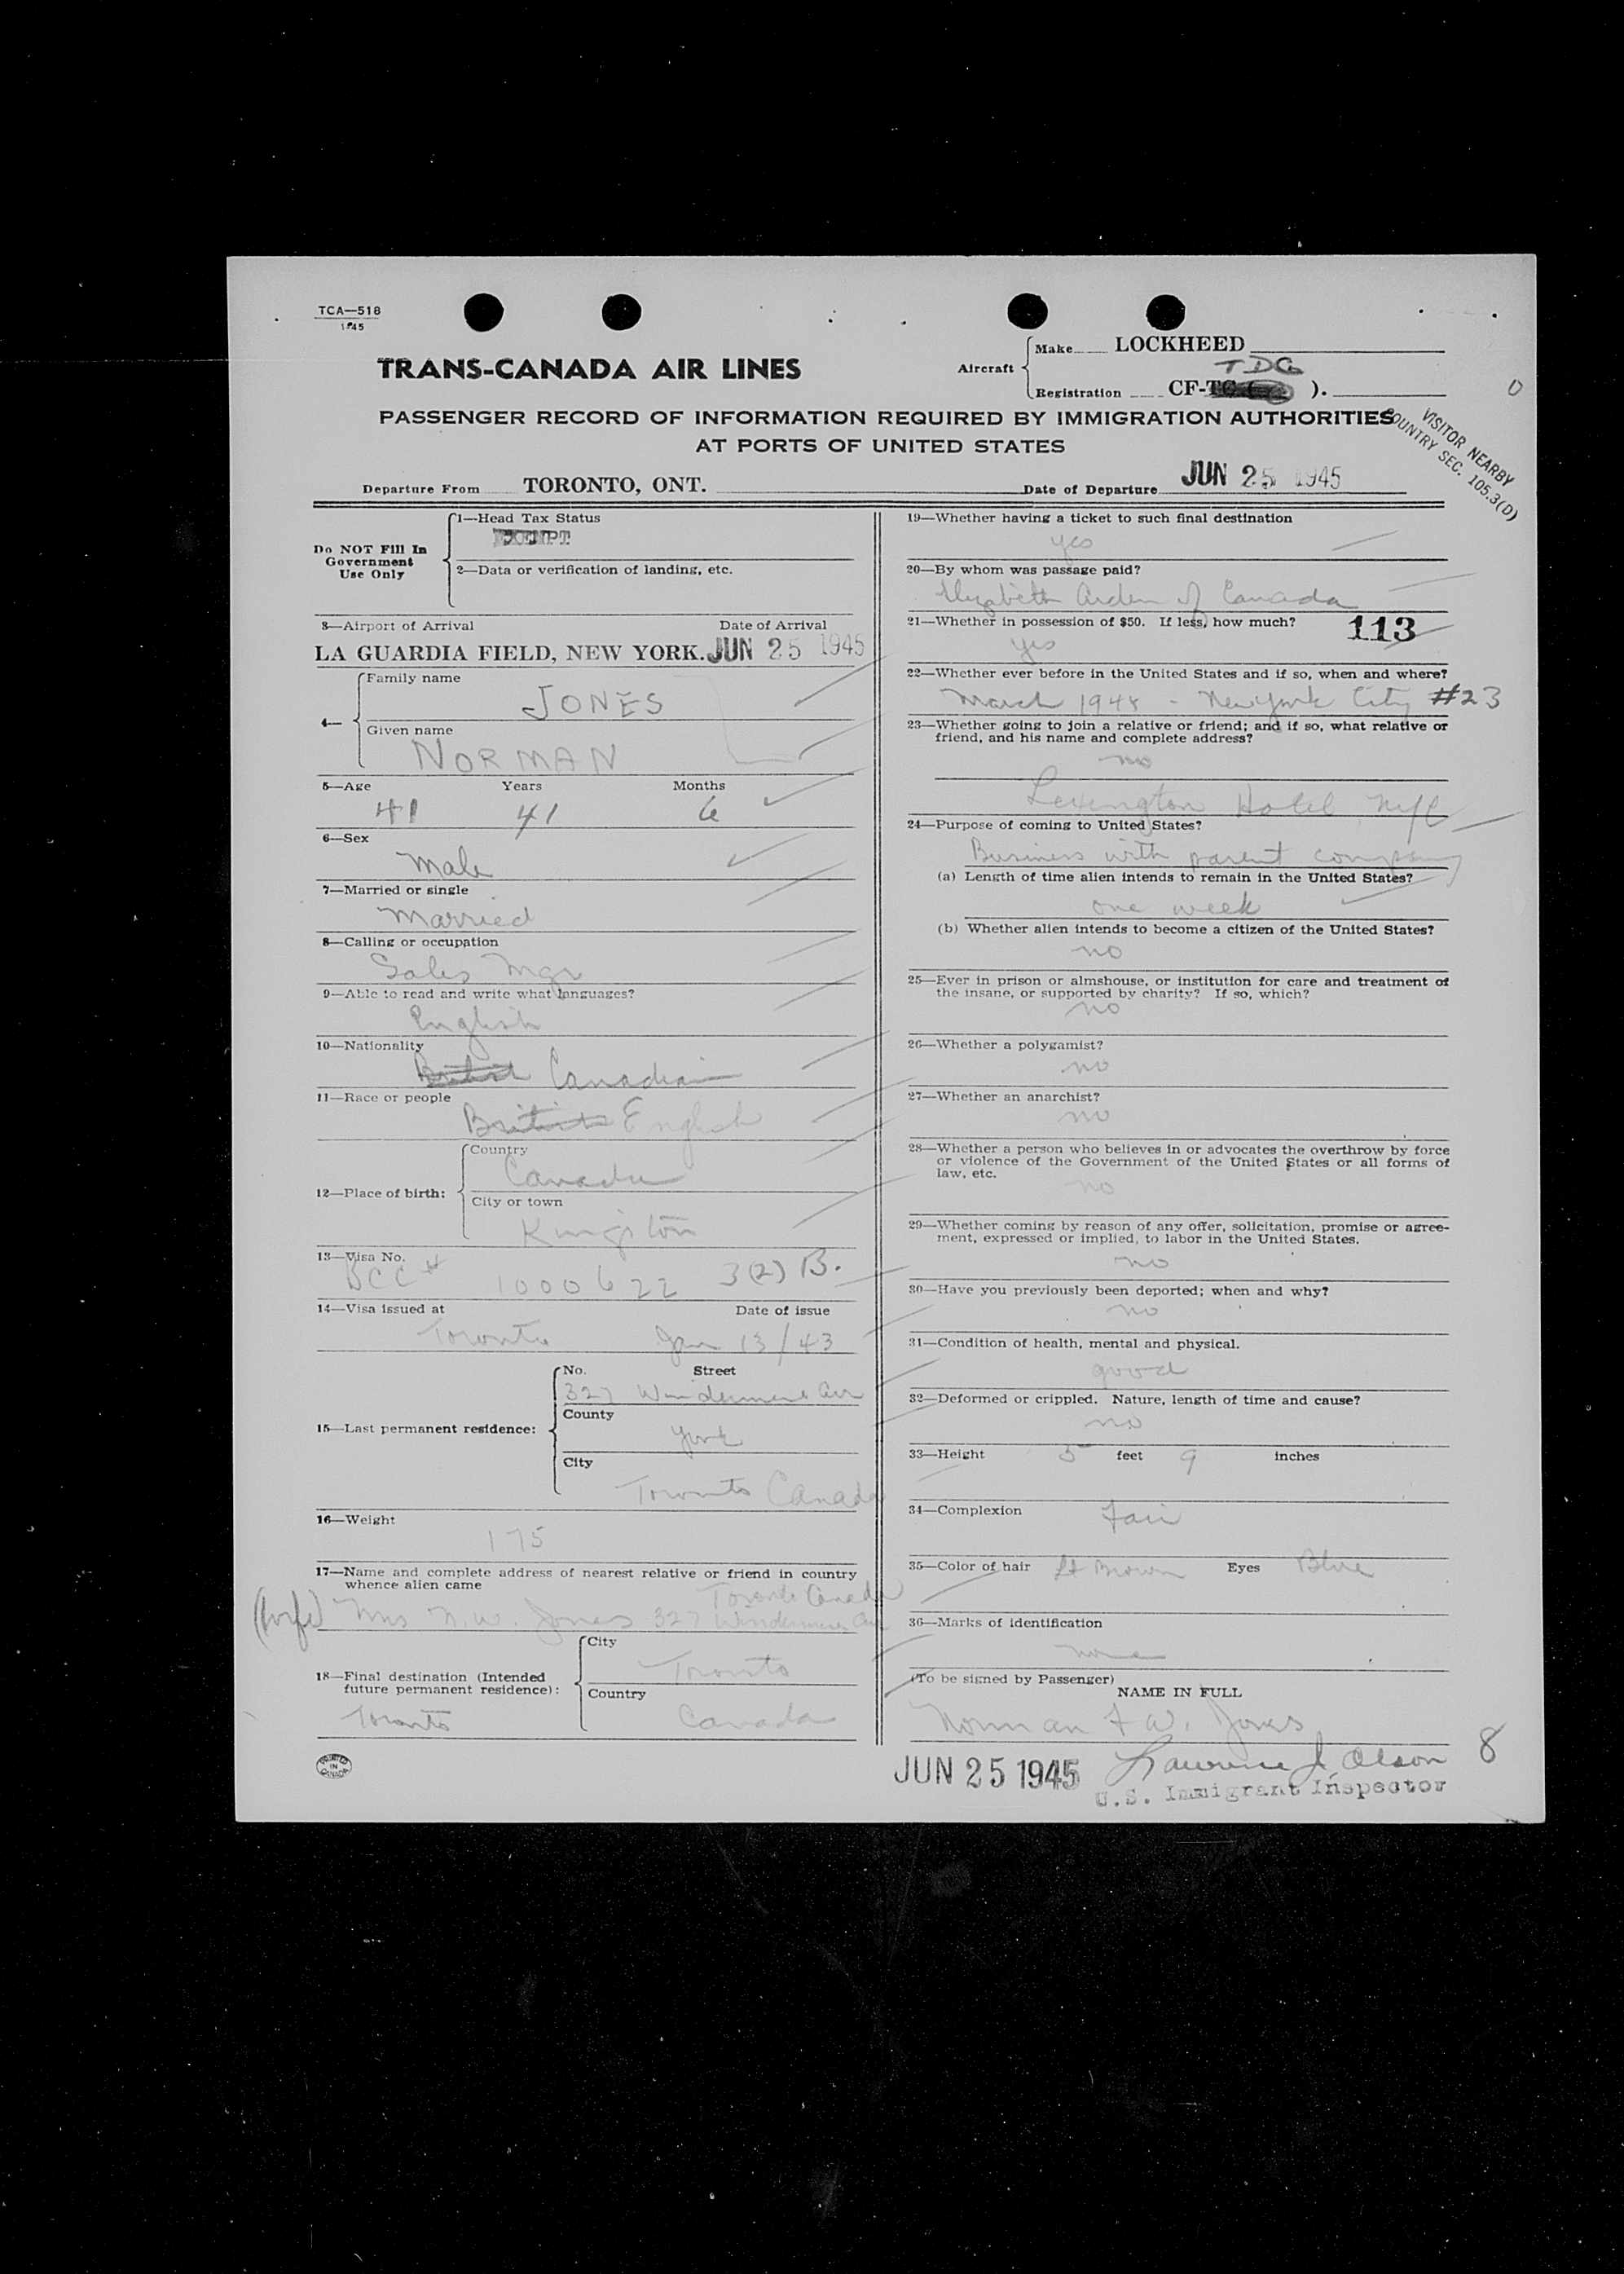 TCA—518
1-45
TRANS-CANADA AIR LINES
Aircraft
Make LOCKHEED
TDG
Registration CF-TC ( ).
PASSENGER RECORD OF INFORMATION REQUIRED BY IMMIGRATION AUTHORITIES
AT PORTS OF UNITED STATES
VISITOR NEARBY
COUNTRY SEC. 105.3(D)
Departure From TORONTO, ONT. Date of Departure JUN 25 1945
Do NOT Fill In
Government
Use Only
1—Head Tax Status
EXEMPT
2—Data or verification of landing, etc.
3—Airport of Arrival Date of Arrival
LA GUARDIA FIELD, NEW YORK. JUN 25 1945
4—
Family name
JONES
Given name
NORMAN
5—Age Years Months
41 41 6
6—Sex
Male
7—Married or single
Married
8—Calling or occupation
Sales Mgr
9—Able to read and write what languages?
English
10—Nationality
British Canadian
11—Race or people
British English
12—Place of birth:
Country
Canada
City or town
Kingston
13—Visa No.
BCC# 1000622 3(2) B.
14—Visa issued at Date of issue
Toronto Jan 13/43
15—Last permanent residence:
No. Street
327 Windermere Ave
County
York
City
Toronto Canada
16—Weight
175
17—Name and complete address of nearest relative or friend in country
whence alien came
Toronto Canada
(wife) Mrs N.W. Jones 327 Windermere Ave
18—Final destination (Intended
future permanent residence):
Toronto
City
Toronto
Country
Canada
PRINTED
IN
CANADA
19—Whether having a ticket to such final destination
yes
20—By whom was passage paid?
Elizabeth Arden of Canada
21—Whether in possession of $50. If less, how much? 113
yes
22—Whether ever before in the United States and if so, when and where?
March 1945 - New York City #23
23—Whether going to join a relative or friend; and if so, what relative or
friend, and his name and complete address?
no
Lexington Hotel NYC
24—Purpose of coming to United States?
Business with parent company
(a) Length of time alien intends to remain in the United States?
one week
(b) Whether alien intends to become a citizen of the United States?
no
25—Ever in prison or almshouse, or institution for care and treatment of
the insane, or supported by charity? If so, which?
no
26—Whether a polygamist?
no
27—Whether an anarchist?
no
28—Whether a person who believes in or advocates the overthrow by force
or violence of the Government of the United States or all forms of
law, etc.
no
29—Whether coming by reason of any offer, solicitation, promise or agree-
ment, expressed or implied, to labor in the United States.
no
30—Have you previously been deported; when and why?
no
31—Condition of health, mental and physical.
good
32—Deformed or crippled. Nature, length of time and cause?
no
33—Height 5 feet 9 inches
34—Complexion Fair
35—Color of hair Lt Brown Eyes Blue
36—Marks of identification
none
(To be signed by Passenger)
NAME IN FULL
Norman F W. Jones
JUN 25 1945 Lawrence J. Olson 8
U.S. Immigrant Inspector